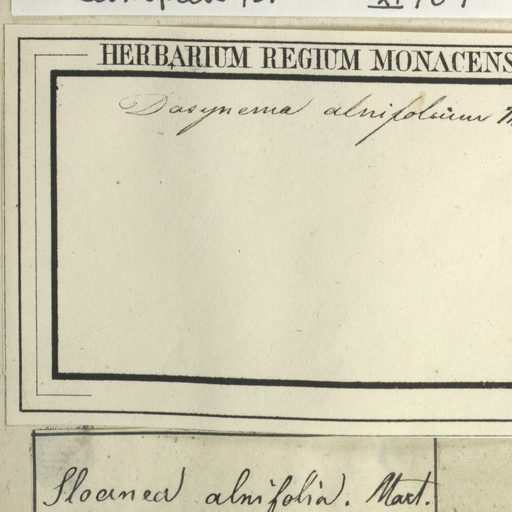 HERBARIUM REGIUM MONACENS
Dasynema alnifolium M
Sloanea alnifolia. Mart.